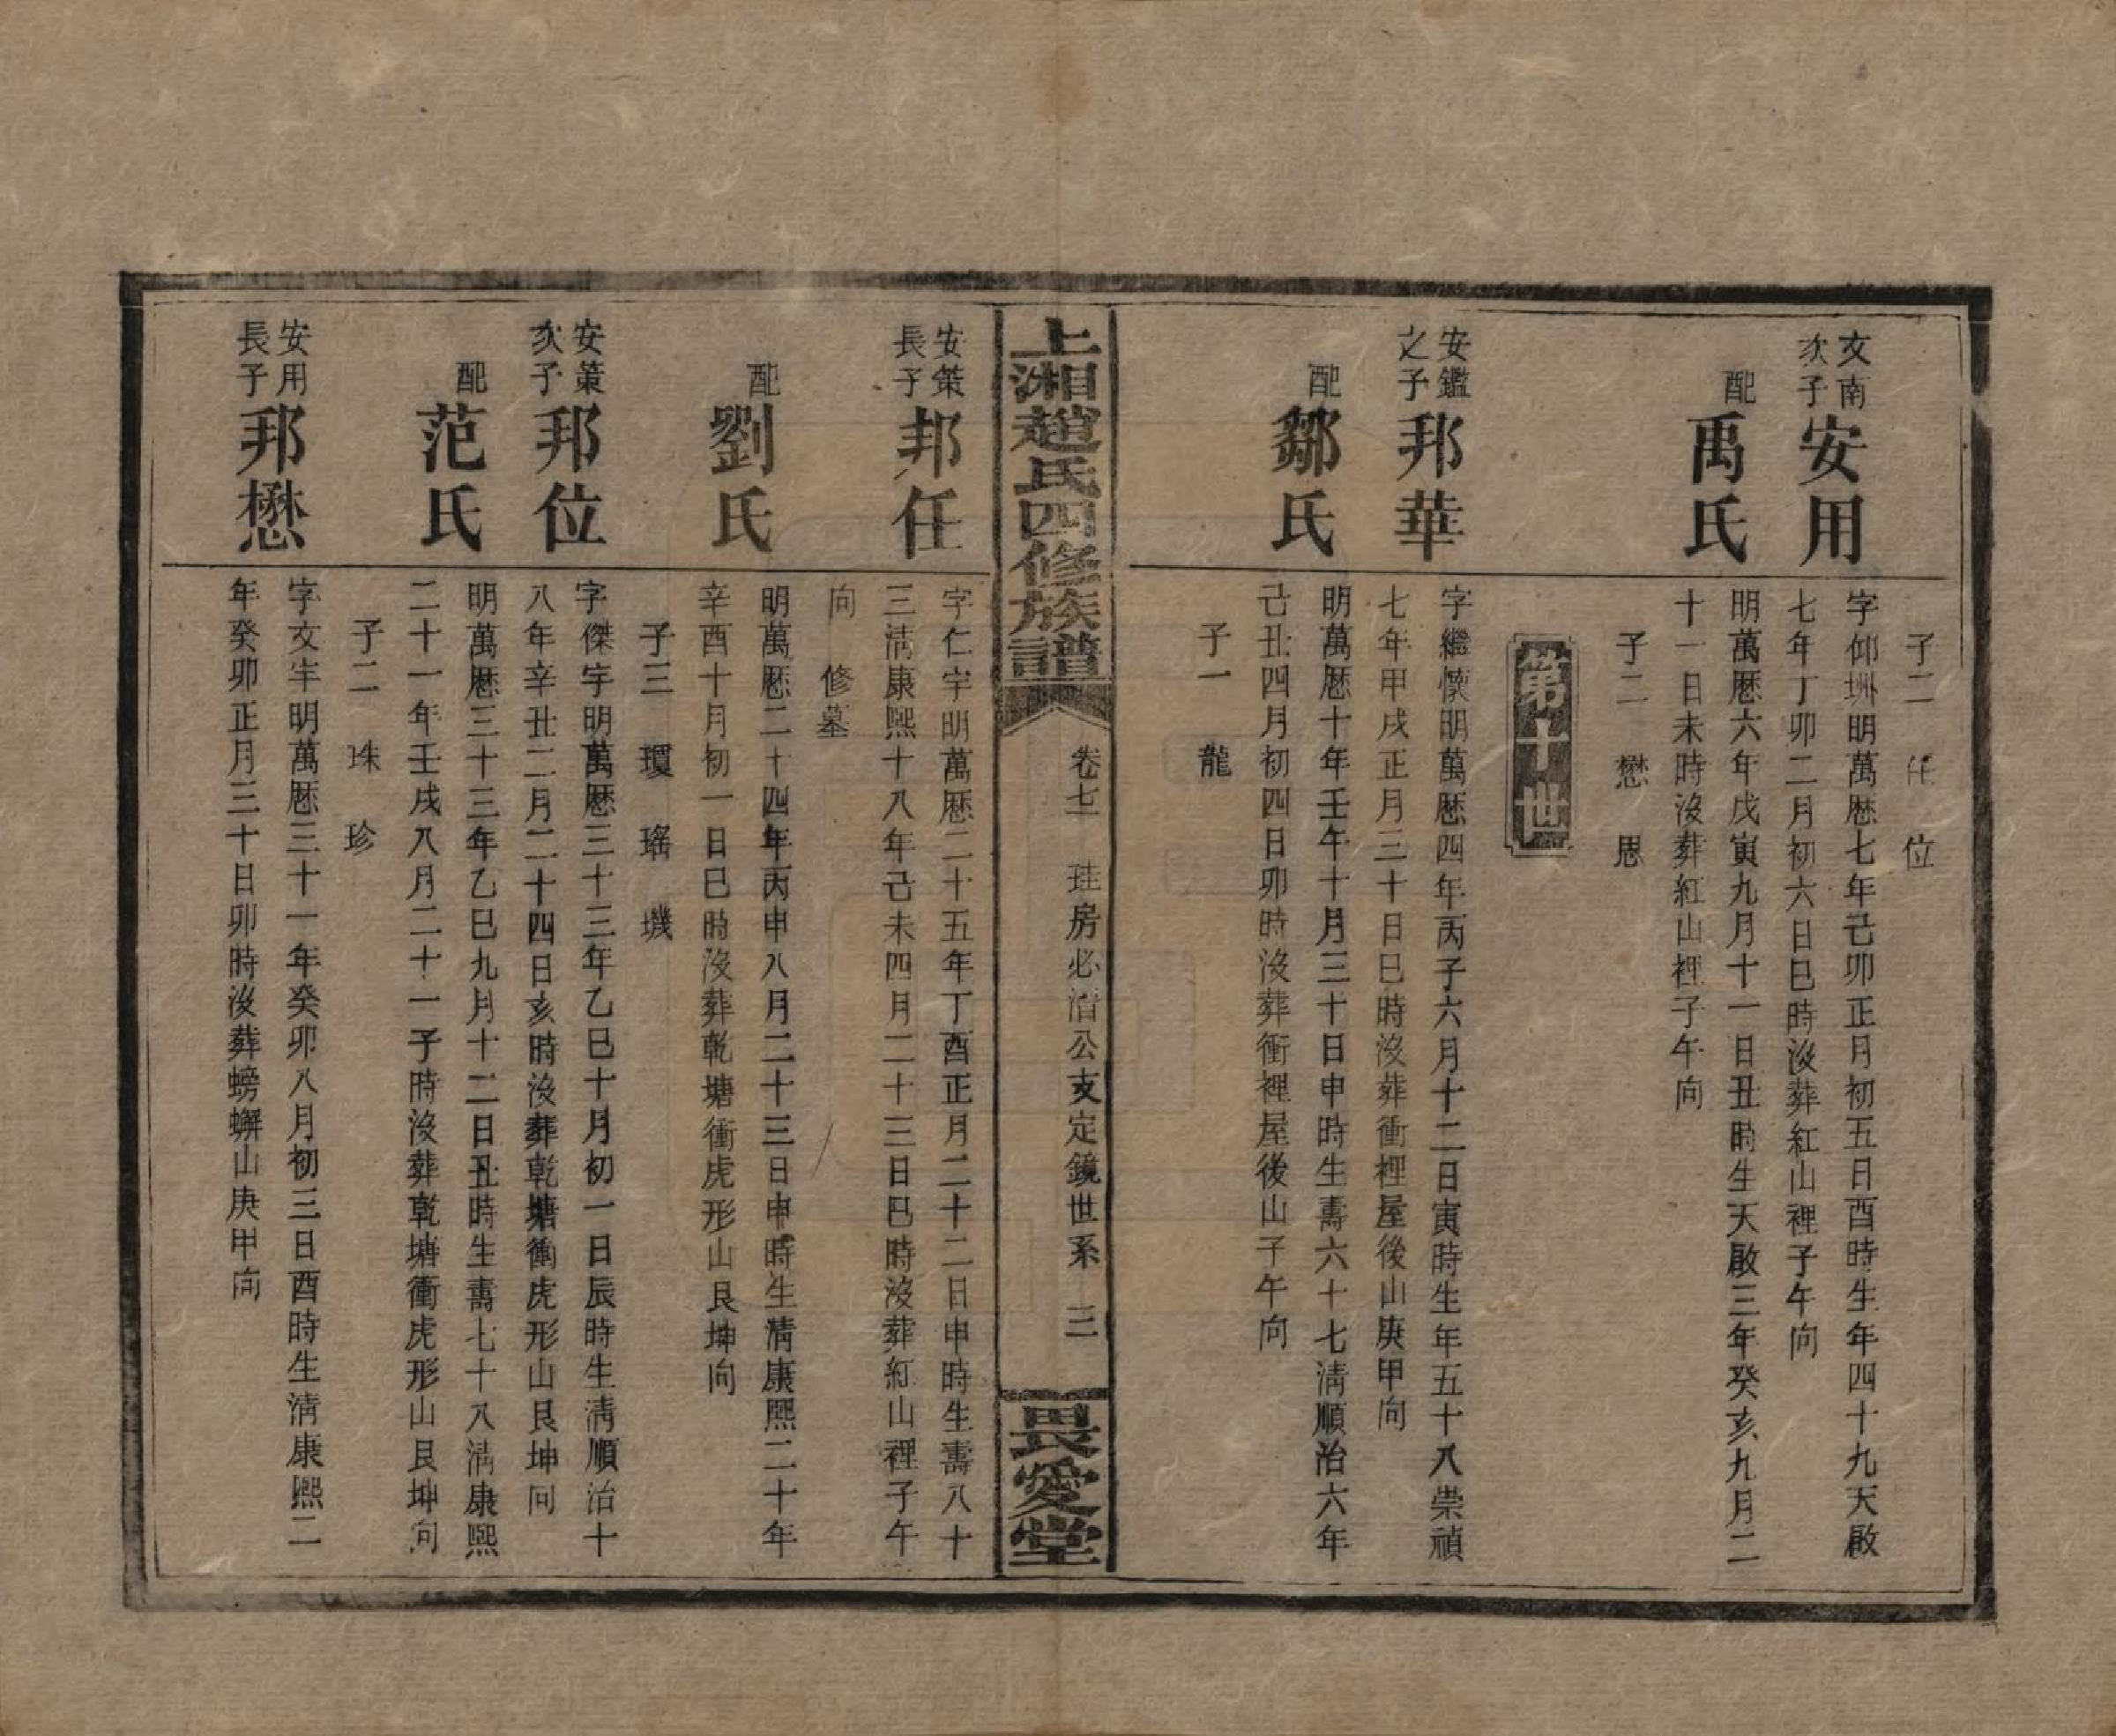 子二 任 位
文南次子 安用
字仰洲明萬歷七年己卯正月初五日酉時生年四十九天啟
七年丁卯二月初六日巳時沒葬紅山裡子午向
配 禹氏
明萬歷六年戊寅九月十一日丑時生天啟三年癸亥九月二
十一日未時沒葬紅山裡子午向
子二 懋 思
第十世
安鑑之子 邦華
字繼懷明萬歷四年丙子六月十二日寅時生年五十八崇禎
七年甲戌正月三十日巳時沒葬衝裡屋後山庚甲向
配 鄒氏
明萬歷十年壬午十月三十日申時生壽六十七清順治六年
己丑四月初四日卯時沒葬衝裡屋後山子午向
子一 龍
上湘趙氏四修族譜 卷七 珪房必清公支定鏡世系 三 畏愛堂
安策長子 邦任
字仁宇明萬歷二十五年丁酉正月二十二日申時生壽八十
三清康熙十八年己未四月二十三日巳時沒葬紅山裡子午
向 修墓
配 劉氏
明萬歷二十四年丙申八月二十三日申時生清康熙二十年
辛酉十月初一日巳時沒葬乾塘衝虎形山艮坤向
子三 瓊 瑤 璣
安策次子 邦位
字傑宇明萬歷三十三年乙巳十月初一日辰時生清順治十
八年辛丑二月二十四日亥時沒葬乾塘衝虎形山艮坤向
配 范氏
明萬歷三十三年乙巳九月十二日丑時生壽七十八清康熙
二十一年壬戌八月二十一子時沒葬乾塘衝虎形山艮坤向
子二 珠 珍
安用長子 邦懋
字文宇明萬歷三十一年癸卯八月初三日酉時生清康熙二
年癸卯正月三十日卯時沒葬螃蠏山庚甲向